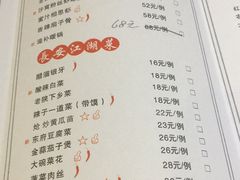 52元/例
58元/例
68元
68元/例
滋补暖锅
长安江湖菜
醋溜银牙 16元/例
酸辣白菜 16元/例
老陕下乡菜 18元/例
辣子一道菜(带馍) 22元/例
炝炒黄瓜苗 23元/例
东府豆腐菜 26元/例
金蒜茄子煲 26元/例
大碗菜花 28元/例
28元/例